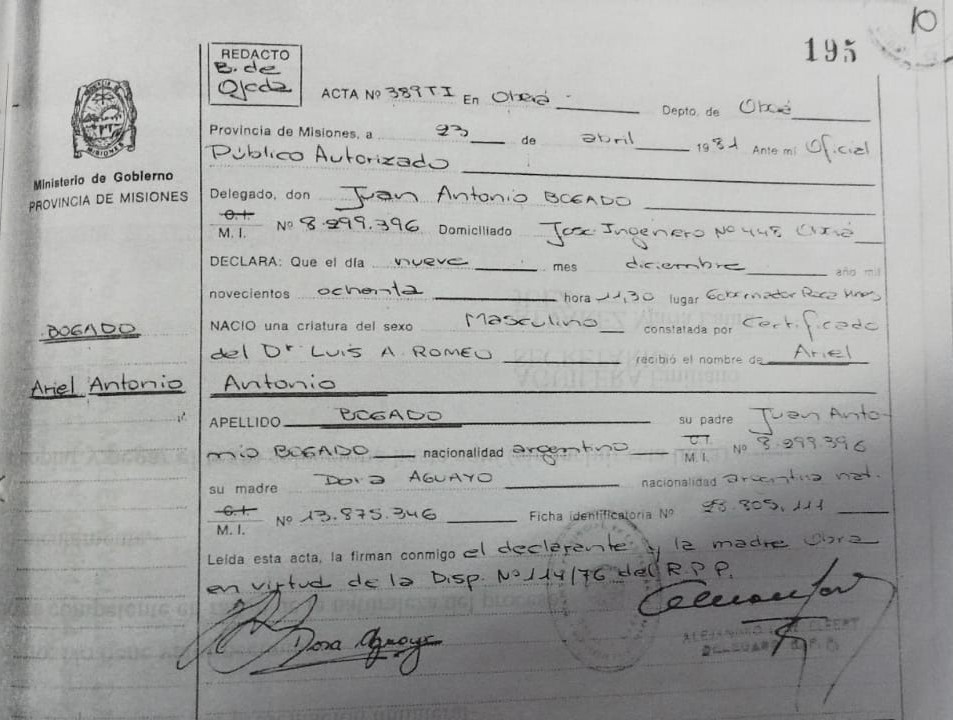 10
195
REDACTO
B. de
Ojeda
ACTA Nº 389 TI En Oberá Depto. de Oberá
Provincia de Misiones, a 23 de abril 1981 Ante mi Oficial
Público Autorizado
Ministerio de Gobierno
PROVINCIA DE MISIONES
Delegado, don Juan Antonio BOGADO
C.I.
M. I. Nº 8.299.396 Domiciliado Jose Ingenero Nº 448 Oberá
DECLARA: Que el día nueve mes diciembre año mil
novecientos ochenta hora 11,30 lugar Gobernador Roca
BOGADO
NACIO una criatura del sexo Masculino constatada por Certificado
del Dr LUIS A. ROMEO recibió el nombre de Ariel
Ariel Antonio
Antonio
APELLIDO BOGADO su padre Juan Anto-
nio BOGADO nacionalidad argentino C.I.
M. I. Nº 8.299.396
su madre Dora AGUAYO nacionalidad argentina nat.
C.I.
M. I. Nº 13.875.346 Ficha identificatoria Nº 28.805.111
Leída esta acta, la firman conmigo el declarante y la madre
en virtud de la Disp. Nº 114/76 del R.P.P.
Dora Aguayo